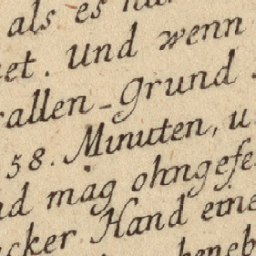 als es
et. Und wenn
allen-Grund
58. Minuten, u
nd mag ohngefe
cker Hand eine